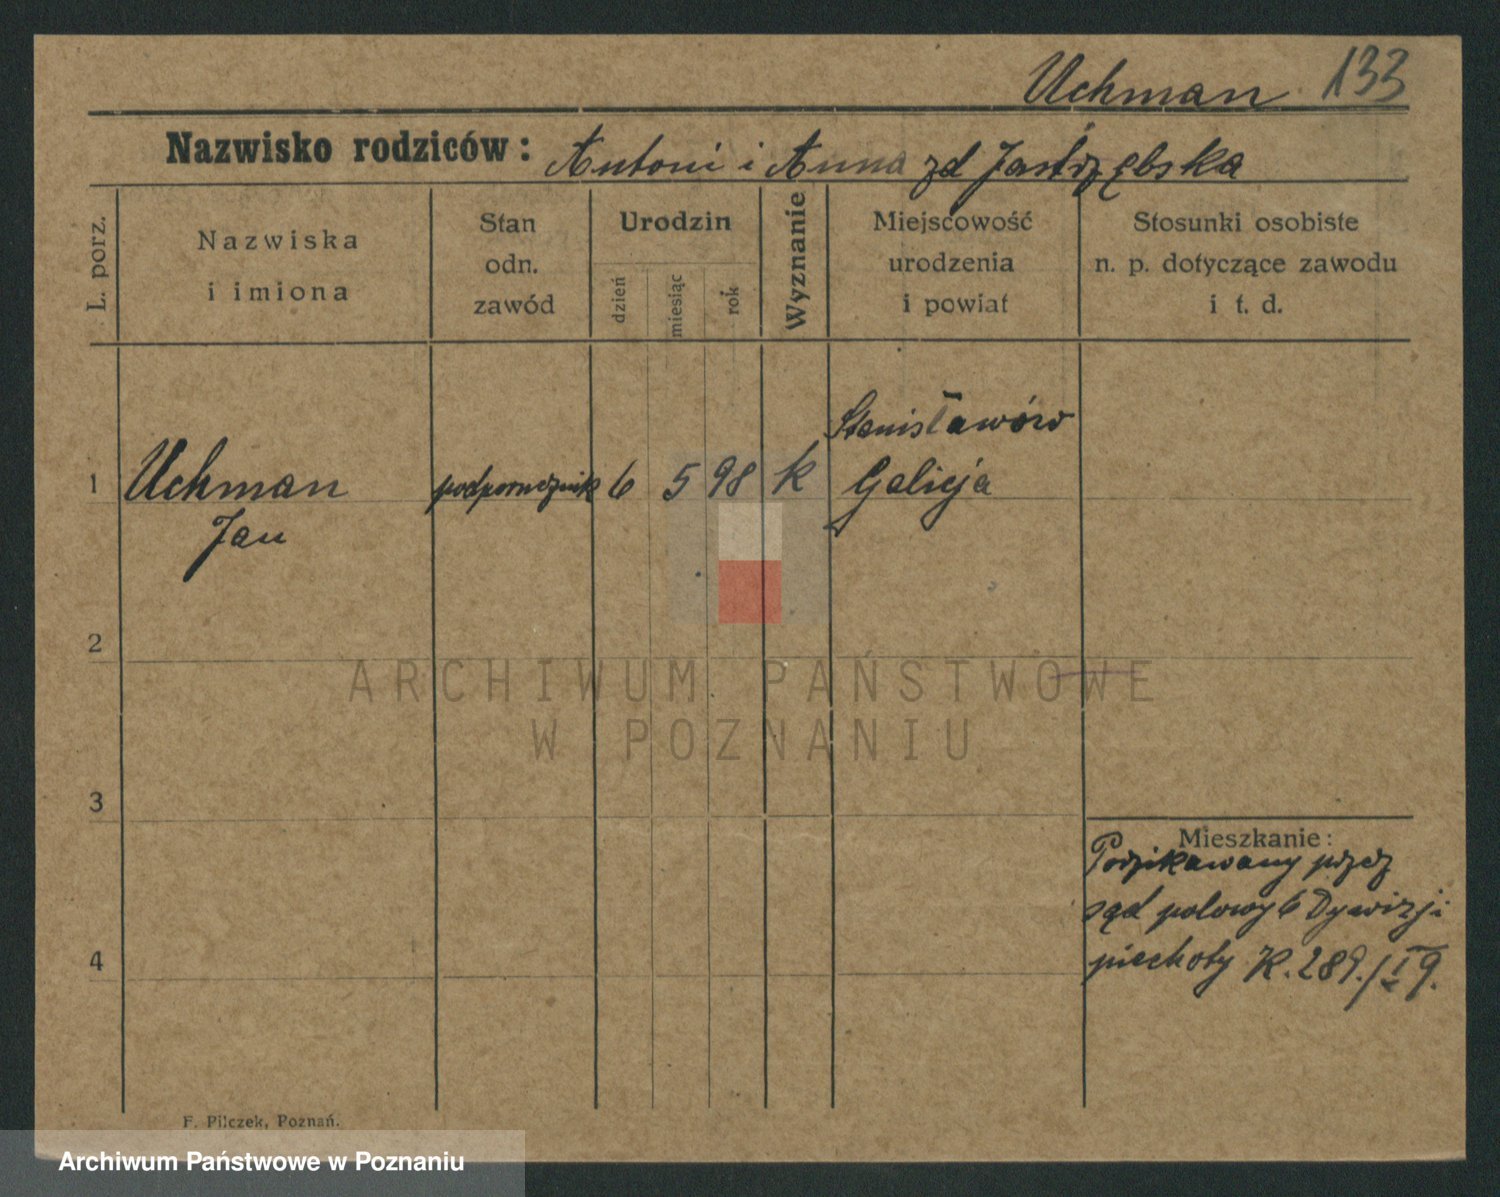 Uchman 133
Nazwisko rodziców: Antoni i Anna zd Jastrzębska
L. porz.
Nazwiska
i imiona
Stan
odn.
zawód
Urodzin
dzień
miesiąc
rok
Wyznanie
Miejscowość
urodzenia
i powiat
Stosunki osobiste
n. p. dotyczące zawodu
i t. d.
1 Uchman podporucznik 6 5 98 k Stanisławów
Jan Galicja
2
ARCHIWUM PAŃSTWOWE
W POZNANIU
3
Mieszkanie:
przez
sąd polowy 6 Dywizji
4 piechoty K. 289./
F. Pilczek, Poznań.
Archiwum Państwowe w Poznaniu